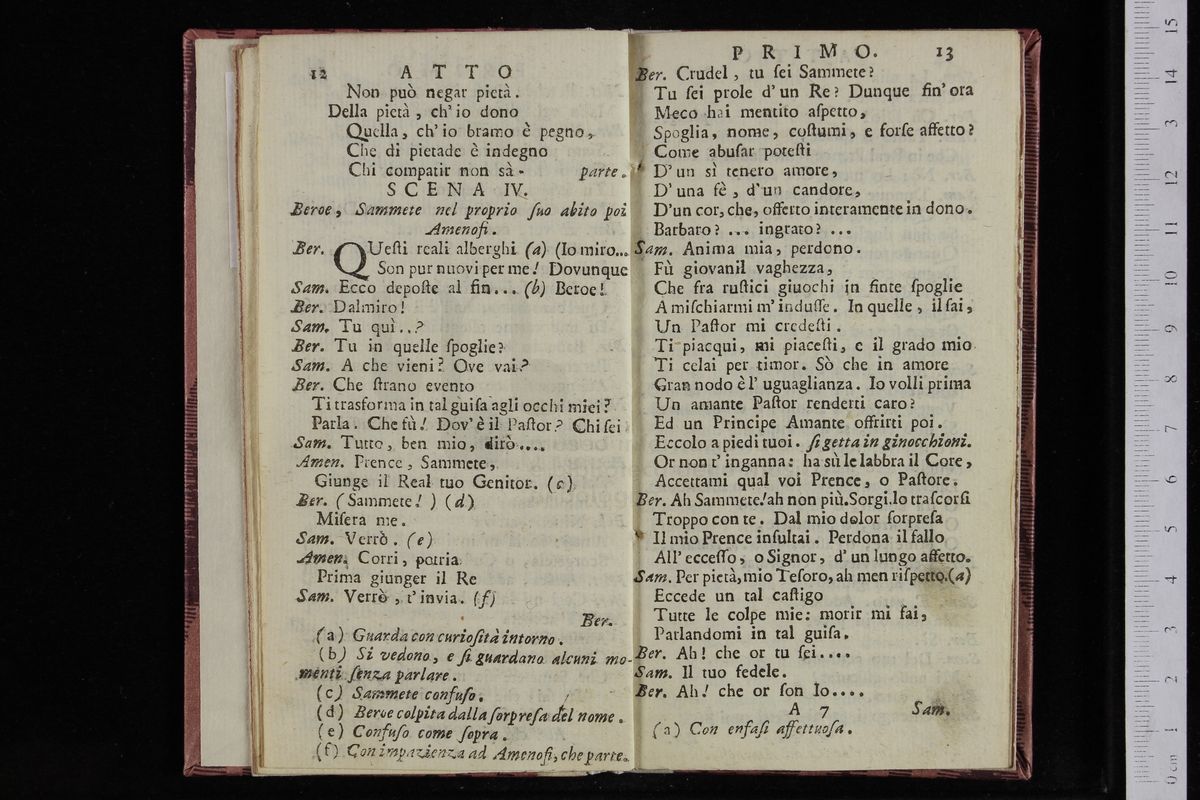 12 ATTO
Non può negar pietà.
Della pietà, ch' io dono
Quella, ch' io bramo è pegno,
Che di pietade è indegno
Chi compatir non sà - parte.
SCENA IV.
Beroe, Sammete nel proprio ſuo abito poi
Amenofi.
Ber. QUeſti reali alberghi (a) (Io miro...
Son pur nuovi per me! Dovunque
Sam. Ecco depoſte al fin... (b) Beroe!
Ber. Dalmiro!
Sam. Tu quì..?
Ber. Tu in quelle ſpoglie?
Sam. A che vieni? Ove vai?
Ber. Che ſtrano evento
Ti trasforma in tal guiſa agli occhi miei?
Parla. Che fù! Dov' è il Paſtor? Chi ſei
Sam. Tutto, ben mio, dirò....
Amen. Prence, Sammete,
Giunge il Real tuo Genitor. (c)
Ber. (Sammete!) (d)
Miſera me.
Sam. Verrò. (e)
Amen. Corri, potria
Prima giunger il Re
Sam. Verrò, t' invia. (f)
Ber.
(a) Guarda con curioſità intorno.
(b) Si vedono, e ſi guardano alcuni mo-
menti ſenza parlare.
(c) Sammete confuſo.
(d) Beroe colpita dalla ſorpreſa del nome.
(e) Confuſo come ſopra.
(f) Con impazienza ad Amenofi, che parte.
PRIMO. 13
Ber. Crudel, tu ſei Sammete?
Tu ſei prole d' un Re? Dunque fin' ora
Meco hai mentito aſpetto,
Spoglia, nome, coſtumi, e forſe affetto?
Come abuſar poteſti
D' un sì tenero amore,
D' una fè, d' un candore,
D' un cor, che, offerto interamente in dono.
Barbaro? ... ingrato? ...
Sam. Anima mia, perdono.
Fù giovanil vaghezza,
Che fra ruſtici giuochi in finte ſpoglie
A miſchiarmi m' induſſe. In quelle, il ſai,
Un Paſtor mi credeſti.
Ti piacqui, mi piaceſti, e il grado mio
Ti celai per timor. Sò che in amore
Gran nodo è l' uguaglianza. Io volli prima
Un amante Paſtor renderti caro?
Ed un Principe Amante offrirti poi.
Eccolo a piedi tuoi. ſi getta in ginocchioni.
Or non t' inganna: ha sù le labbra il Core,
Accettami qual voi Prence, o Paſtore.
Ber. Ah Sammete! ah non più. Sorgi. Io traſcorſi
Troppo con te. Dal mio dolor ſorpreſa
Il mio Prence inſultai. Perdona il fallo
All' ecceſſo, o Signor, d' un lungo affetto.
Sam. Per pietà, mio Teſoro, ah men riſpetto. (a)
Eccede un tal caſtigo
Tutte le colpe mie: morir mi fai,
Parlandomi in tal guiſa.
Ber. Ah! che or tu ſei....
Sam. Il tuo fedele.
Ber. Ah! che or ſon Io....
A 7 Sam.
(a) Con enfaſi affettuoſa.